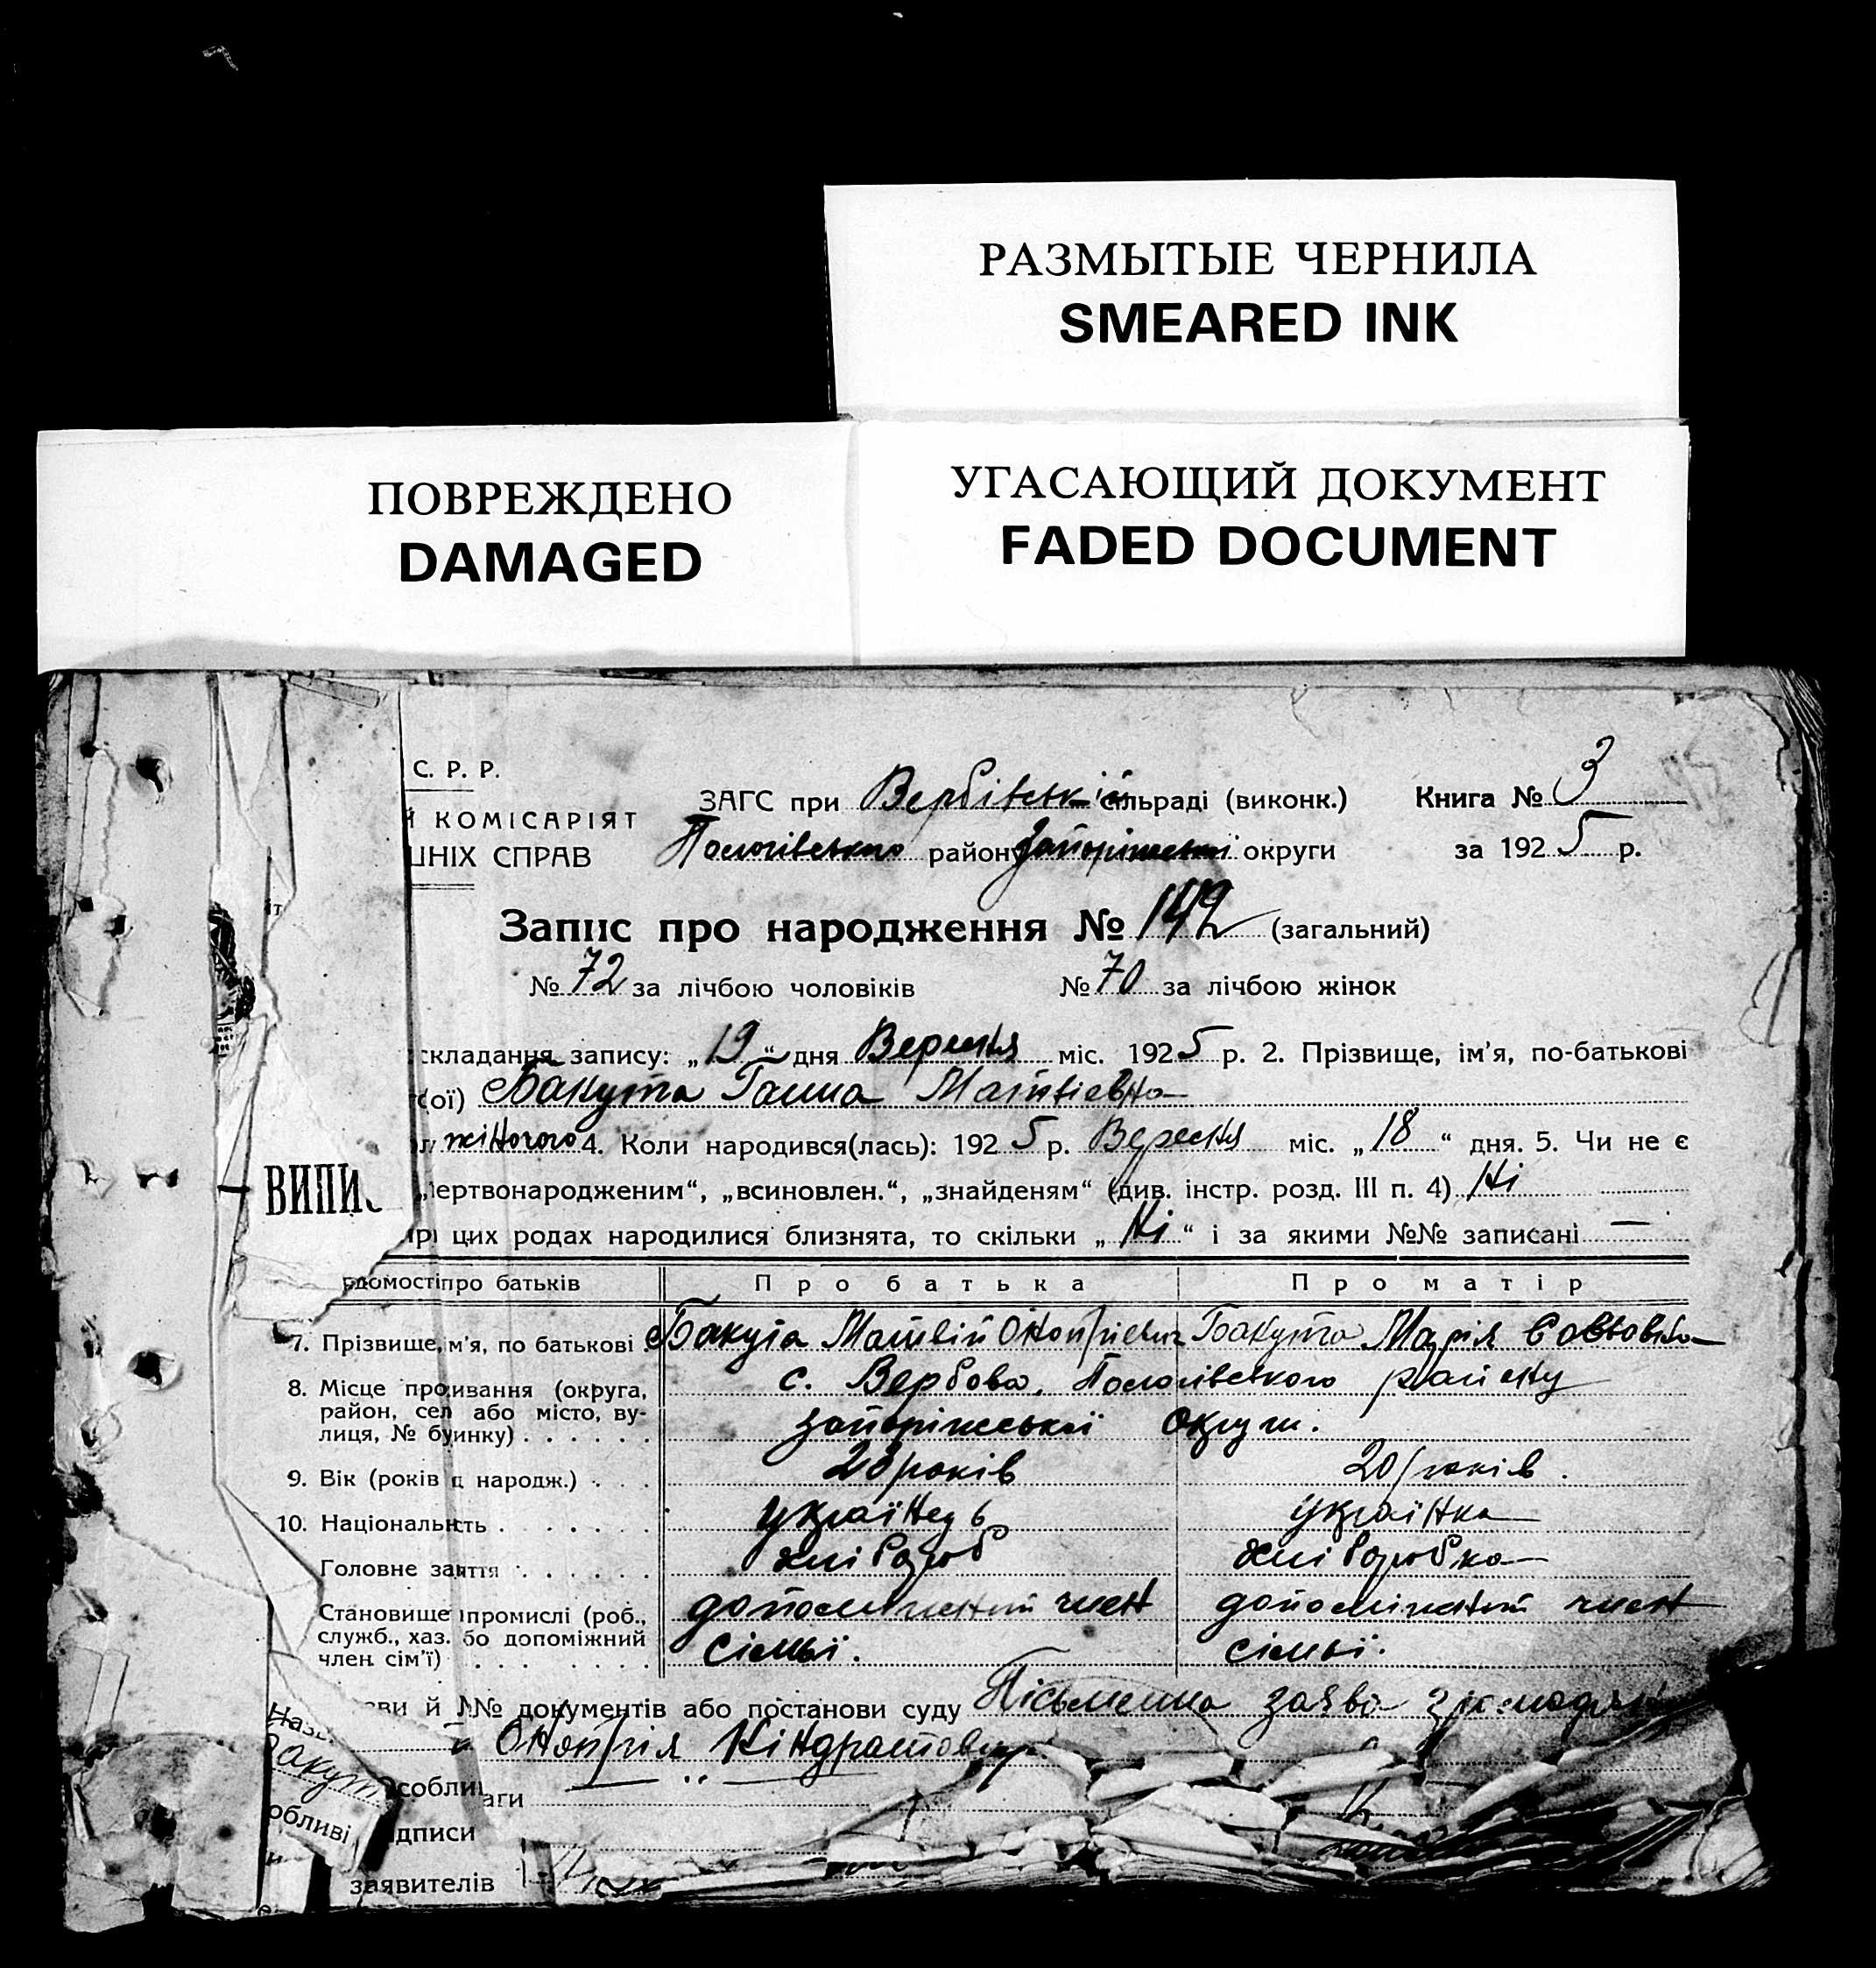 РАЗМЫТЫЕ ЧЕРНИЛА
SMEARED INK
ПОВРЕЖДЕНО
DAMAGED
УГАСАЮЩИЙ ДОКУМЕНТ
FADED DOCUMENT
С. Р. Р.
Й КОМІСАРІЯТ
ШНІХ СПРАВ
ЗАГС при Вербівській сільраді (виконк.) Книга № 3
Пологівського району Запоріжської округи за 1925 р.
Запис про народження № 142 (загальний)
№ 72 за лічбою чоловіків № 70 за лічбою жінок
складання запису: „19“ дня Вересня міс. 1925 р. 2. Прізвище, ім'я, по-батькові
ої) Бакута Ганна Матвіевна
жіночого 4. Коли народився(лась): 1925 р. Вересня міс. „18“ дня. 5. Чи не є
ВИПИС
мертвонародженим“, „всиновлен.“, „знайденям“ (див. інстр. розд. III п. 4) Ні
при цих родах народилися близнята, то скільки „Ні“ і за якими №№ записані —
едомості про батьків Про батька Про матір
7. Прізвище, м'я, по батькові Бакута Матвій Онопріевич Бакута Марія
8. Місце проживання (округа, район, сел або місто, ву-
лиця, № буинку) с. Вербова, Пологівського району
запоріжської Округи.
9. Вік (років народж.) 23 років 20 років.
10. Національність українець українка
Головне заяття хлібороб хліборобка
Становище промислі (роб., допоміжний член допоміжний член
служб., хаз. бо допоміжний
член сім'ї) сімьї. сімьї.
ви й №№ документів або постанови суду Пісьменна заява
Назв
Онопрія Кіндратов
Бакут
соблив
аги
обливі
дписи
заявителів